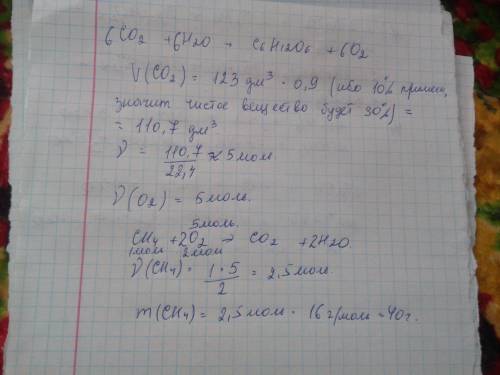 6CO2 + 6H2O → C6H12O6 + 6O2
V(CO2) = 123 дм³ · 0,9 (ибо 10% примеси,
значит чистое вещество будет 90%) =
= 110,7 дм³
ν = 110,7 / 22,4 ≈ 5 мол
ν(O2) = 5 мол.
5 мол.
CH4 + 2O2 → CO2 + 2H2O.
1 мол 2 мол
ν(CH4) = 1 · 5 / 2 = 2,5 мол.
m(CH4) = 2,5 мол · 16 г/мол = 40 г.